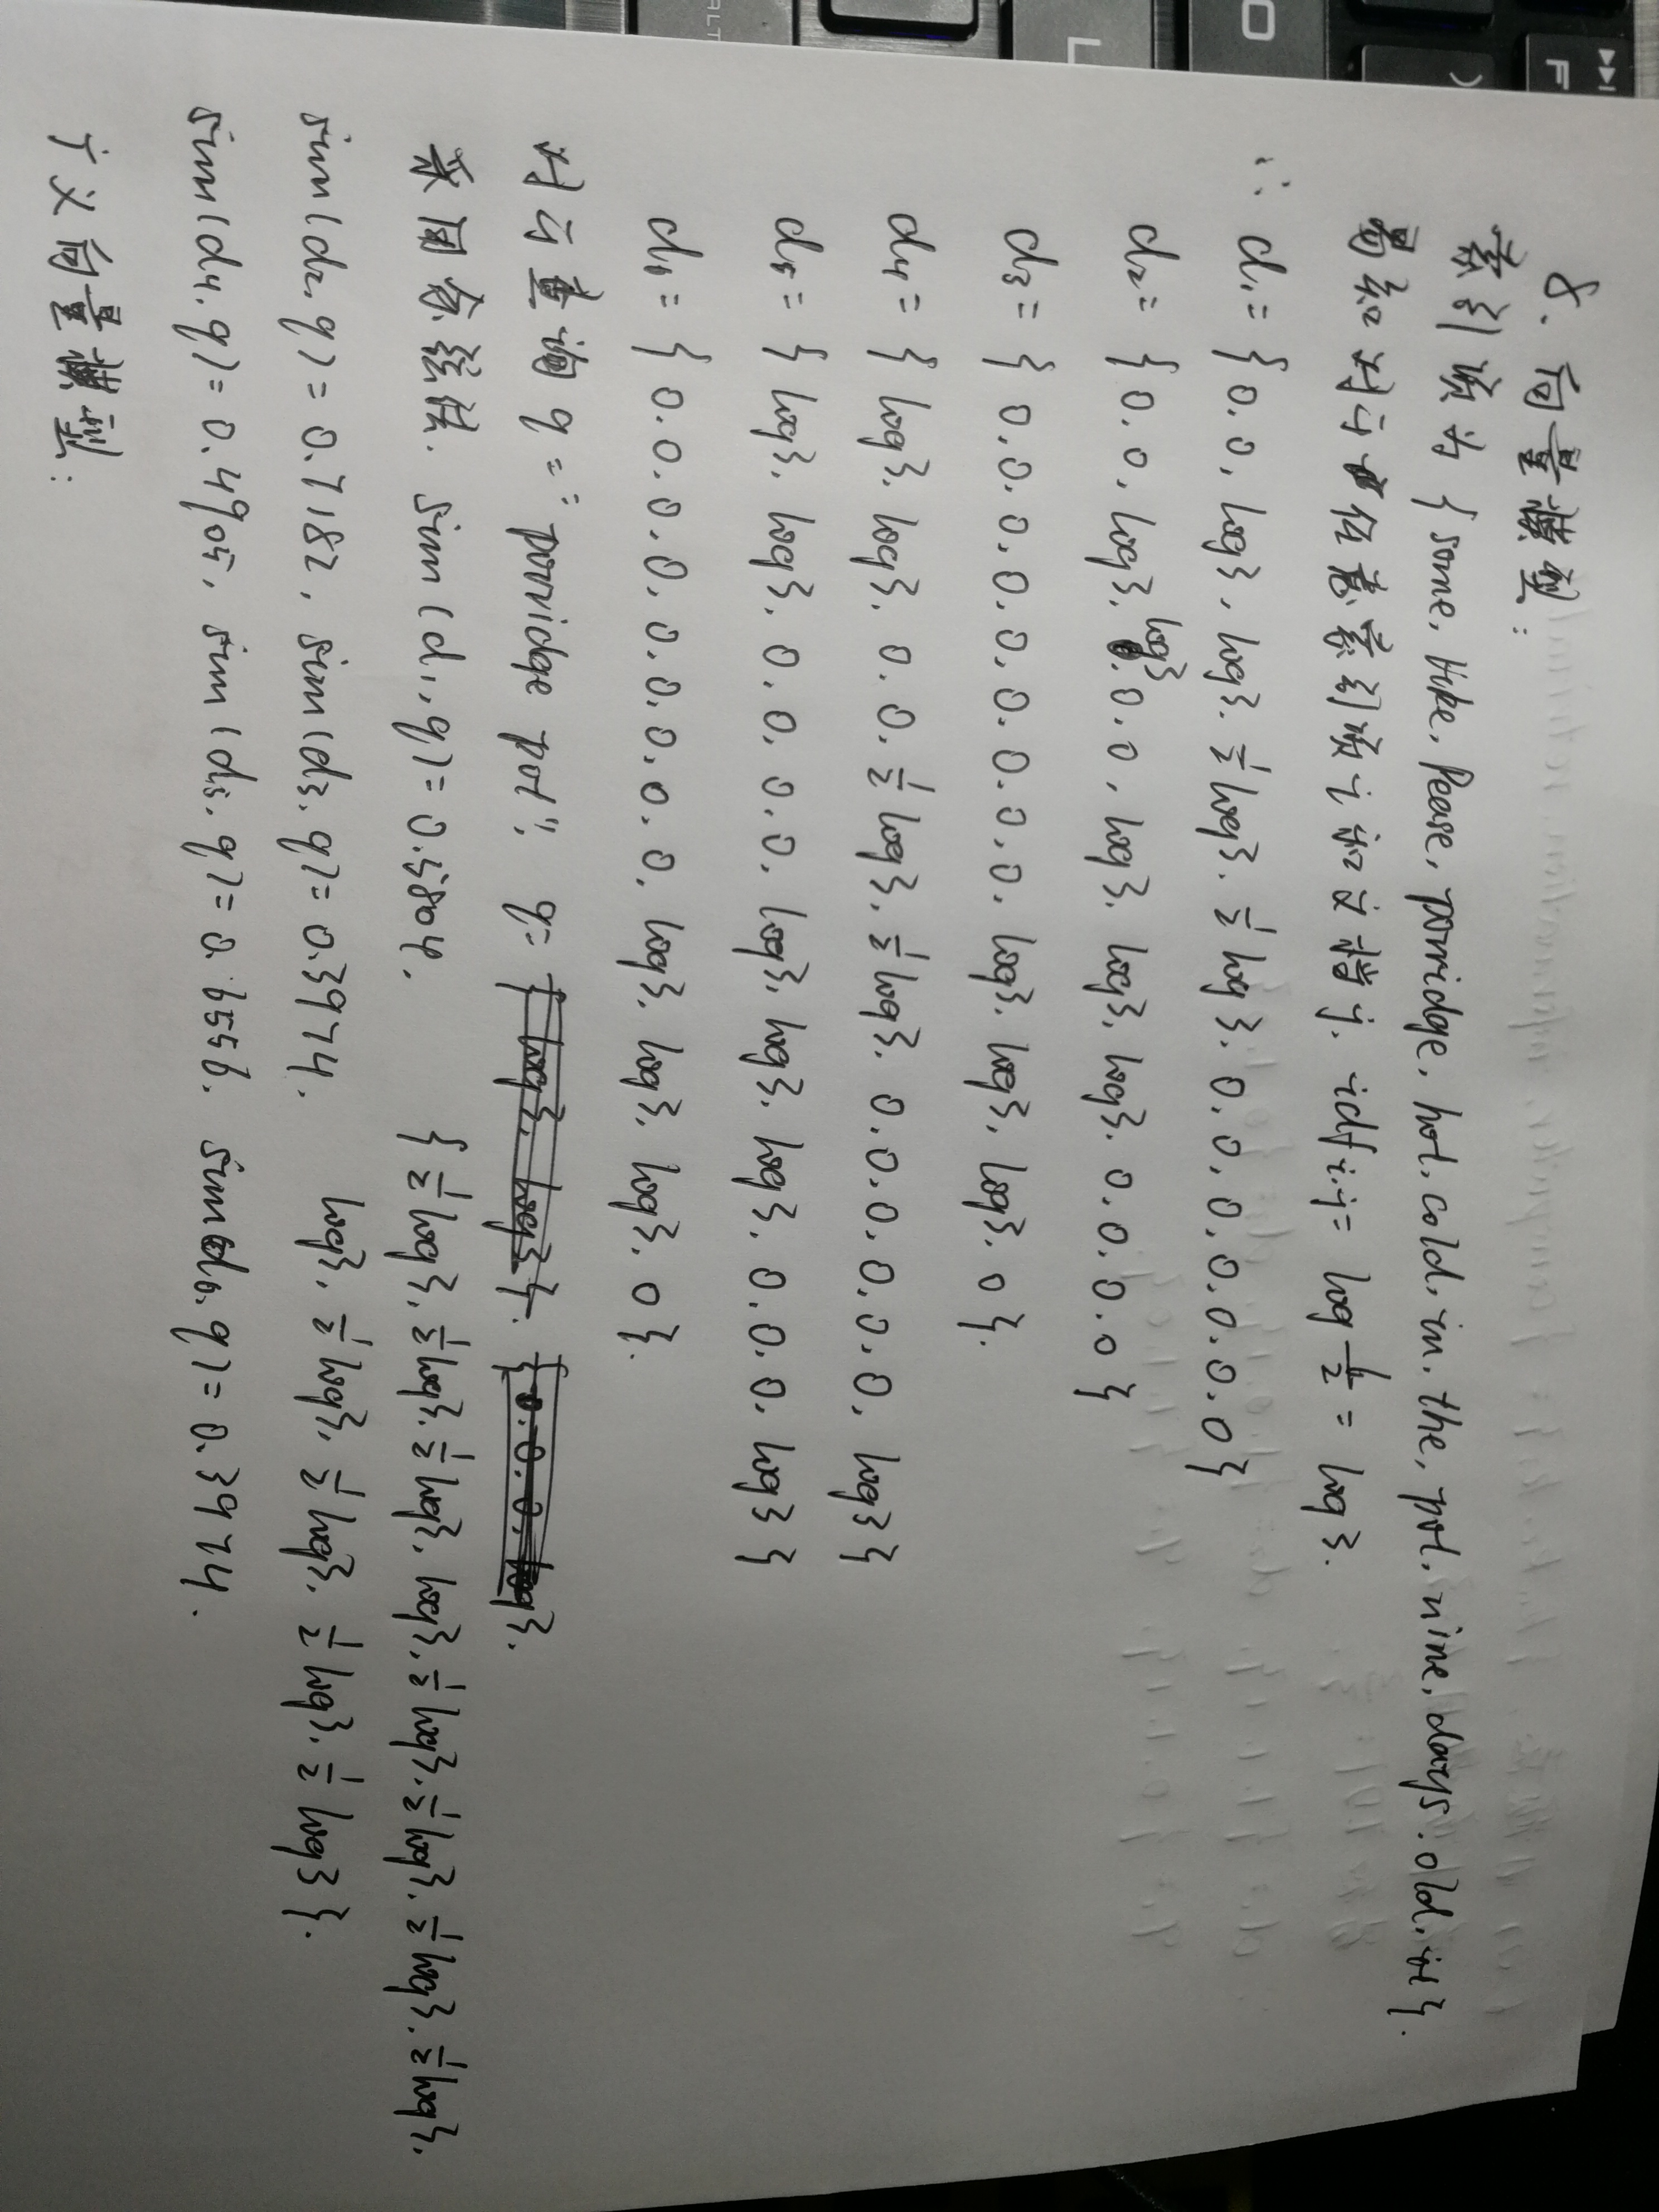 8. 向量模型:
索引项为 { some, like, Pease, porridge, hot, cold, in, the, pot, nine, days, old, it }.
易知对于任意索引项 i 和文档 j, idf i,j = log 6/2 = log 3.
∴ d1 = { 0, 0, log3, log3, 1/2 log3, 1/2 log3, 0, 0, 0, 0, 0, 0, 0 }
d2 = { 0, 0, log3, log3, 0, 0, log3, log3, log3, 0, 0, 0, 0 }
d3 = { 0, 0, 0, 0, 0, 0, 0, 0, 0, log3, log3, log3, 0 }.
d4 = { log3, log3, 0, 0, 1/2 log3, 1/2 log3, 0, 0, 0, 0, 0, 0, log3 }
d5 = { log3, log3, 0, 0, 0, 0, log3, log3, log3, 0, 0, 0, log3 }
d6 = { 0, 0, 0, 0, 0, 0, 0, 0, 0, log3, log3, log3, 0 }.
对于查询 q = "porridge pot", q =
{ 1/2 log3, 1/2 log3, 1/2 log3, log3, 1/2 log3, 1/2 log3, 1/2 log3, 1/2 log3,
log3, 1/2 log3, 1/2 log3, 1/2 log3, 1/2 log3 }.
采用余弦法, sim(d1, q) = 0.5804,
sim(d2, q) = 0.7182, sim(d3, q) = 0.3974,
sim(d4, q) = 0.4905, sim(d5, q) = 0.6556, sim(d6, q) = 0.3974.
广义向量模型:
F
L
ALT